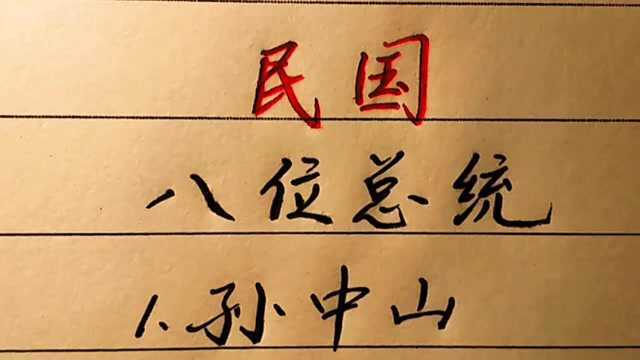 民国
八位总统
1.孙中山